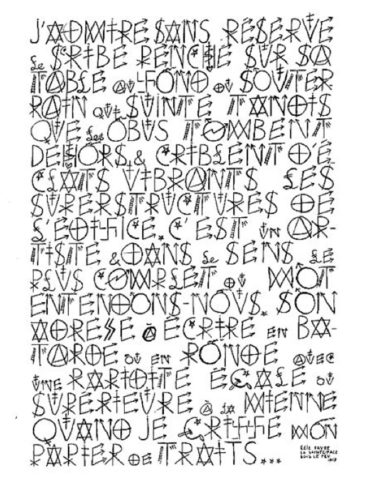 J'ADMIRE SANS RÉSERVE
le SCRIBE PENCHÉ SUR SA
TABLE au FOND du SOUTER
RAIN qui SUINTE TANDIS
QUE les OBUS TOMBENT
DEHORS, & CRIBLENT D'É
CLATS VIBRANTS LES
SUPERSTRUCTURES DE
L'ÉDIFICE. C'EST un AR-
TISTE, & DANS le SENS LE
PLUS COMPLET du MOT
ENTENDONS-NOUS. SON
ADRESSE à ÉCRIRE en BA-
TARDE ou en RONDE avec
une RAPIDITÉ ÉGALE ou
SUPÉRIEURE à la MIENNE
QUAND JE GRIFFE MON
PAPIER de TRAITS...
ELIE FAURE
LA SAINTE FACE
SOUS LE FEU